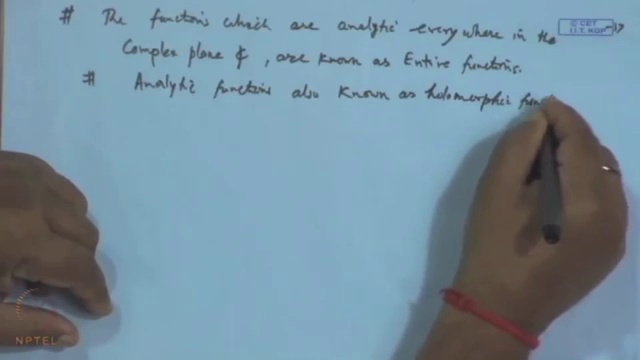 # The functions which are analytic everywhere in the
Complex plane ₵, are known as Entire functions.
# Analytic functions also known as holomorphic fun
© CET
I.I.T. KGP
NPTEL